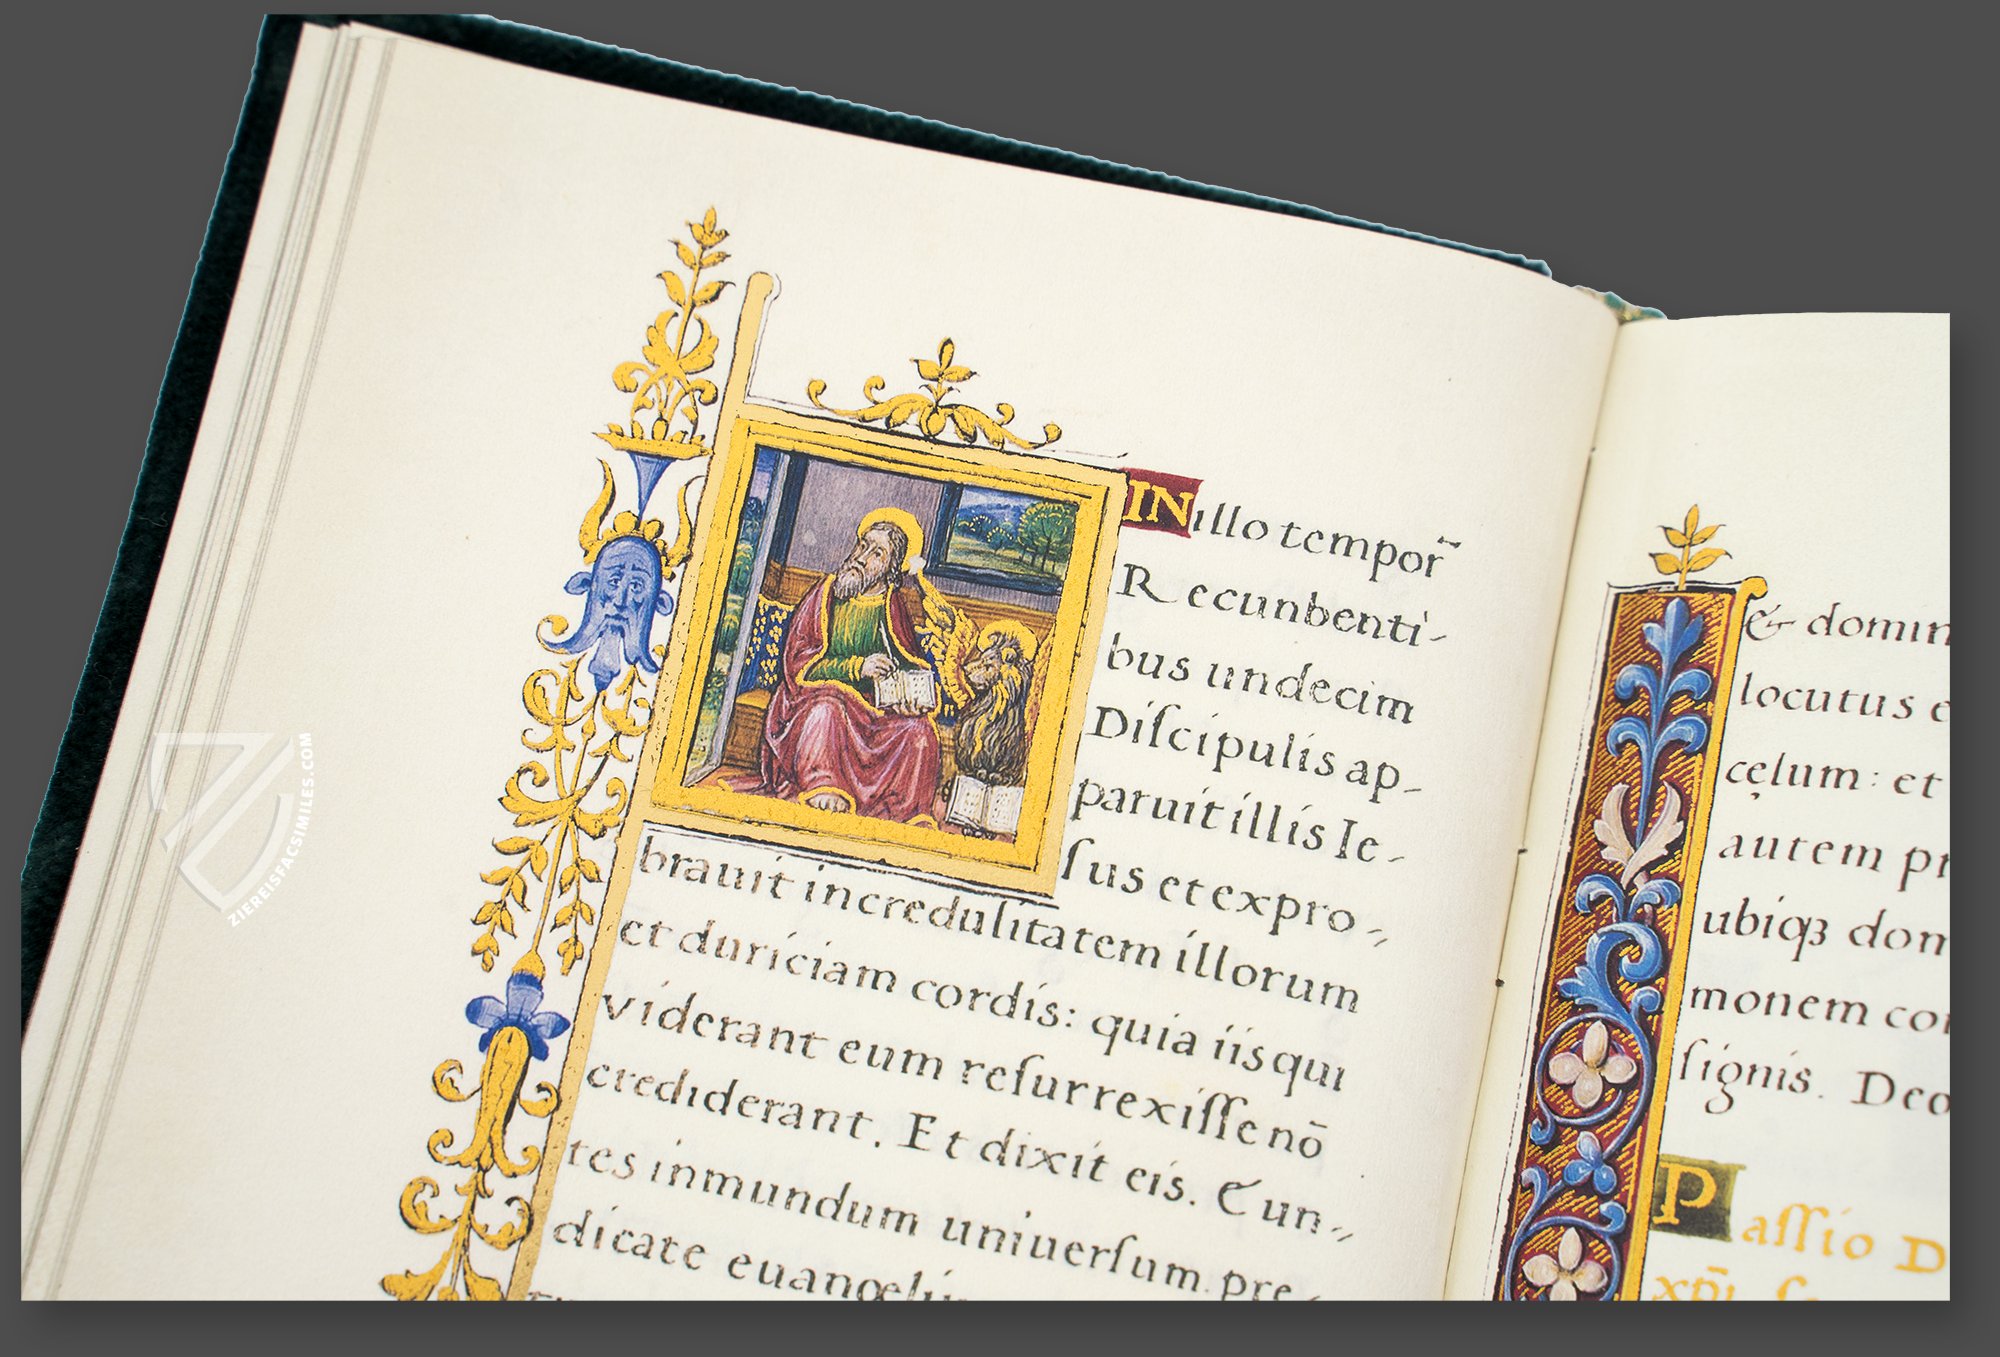 IN illo tempor̃
Recunbenti-
bus undecim
Diſcipulis ap-
paruit illis Ie-
ſus et expro-
brauit incredulitatem illorum
et duriciam cordis: quia iis qui
viderant eum reſurrexiſſe nō
crediderant. Et dixit eis. Eun-
tes in mundum uniuerſum. pre-
dicate euangeliu
& domin
locutus e
cęlum: et
autem pr
ubiqꝫ dom
monem con
ſignis. Deo
Paſſio D
xp̄i
ZIEREISFACSIMILES.COM